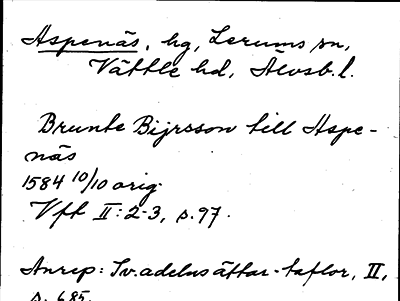 Aspenäs, hg, Lerums sn,
Vättle hd, Älvsb.l.
Brunte Bijrsson till Aspe-
näs
1584 10/10 orig.
Vft II:2-3, s.97.
Anrep: Sv.adelns ättar-taflor, II,
s. 685.